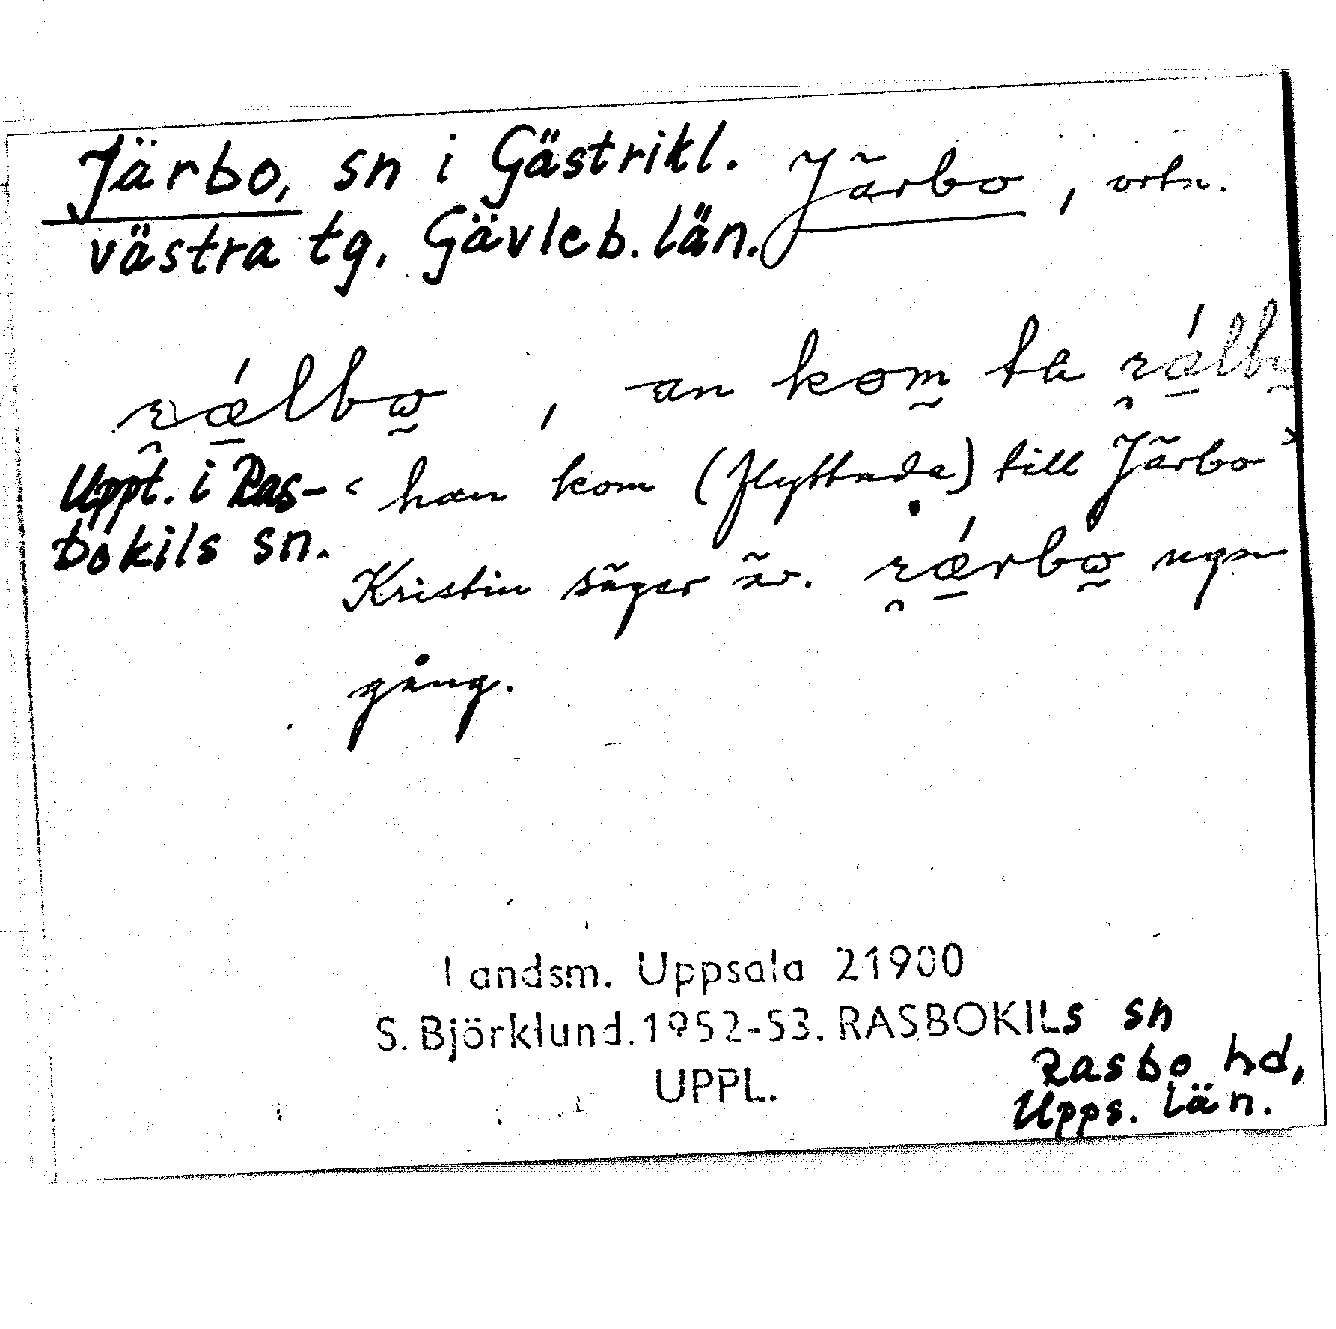 Järbo, sn i Gästrikl. Järbo, ortn.
västra tg, Gävleb. län.
an kom ta
Uppt. i Ras- < han kom (flyttade) till Järbo >
bokils sn.
Kristin säger äv. ngn
gång.
Landsm. Uppsala 21900
S. Björklund. 1952-53. RASBOKILS sn
Rasbo hd,
UPPL.
Upps. län.